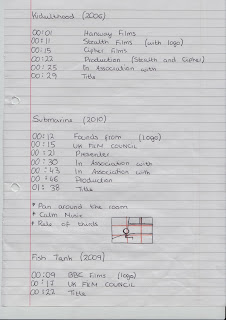 Kidulthood (2006)
00:01 Hanway Films
00:11 Stealth Films (with logo)
00:15 Cipher Films
00:22 Production (Stealth and Cipher)
00:25 In Association with
00:29 Title
Submarine (2010)
00:12 Founds from (logo)
00:15 UK FILM COUNCIL
00:21 Presenter
00:30 In Association with
00:43 In Association with
00:66 Production
01:38 Title
* Pan around the room
* Calm Music
* Rule of thirds
Fish Tank (2009)
00:09 BBC Films (logo)
00:17 UK FILM COUNCIL
00:22 Title